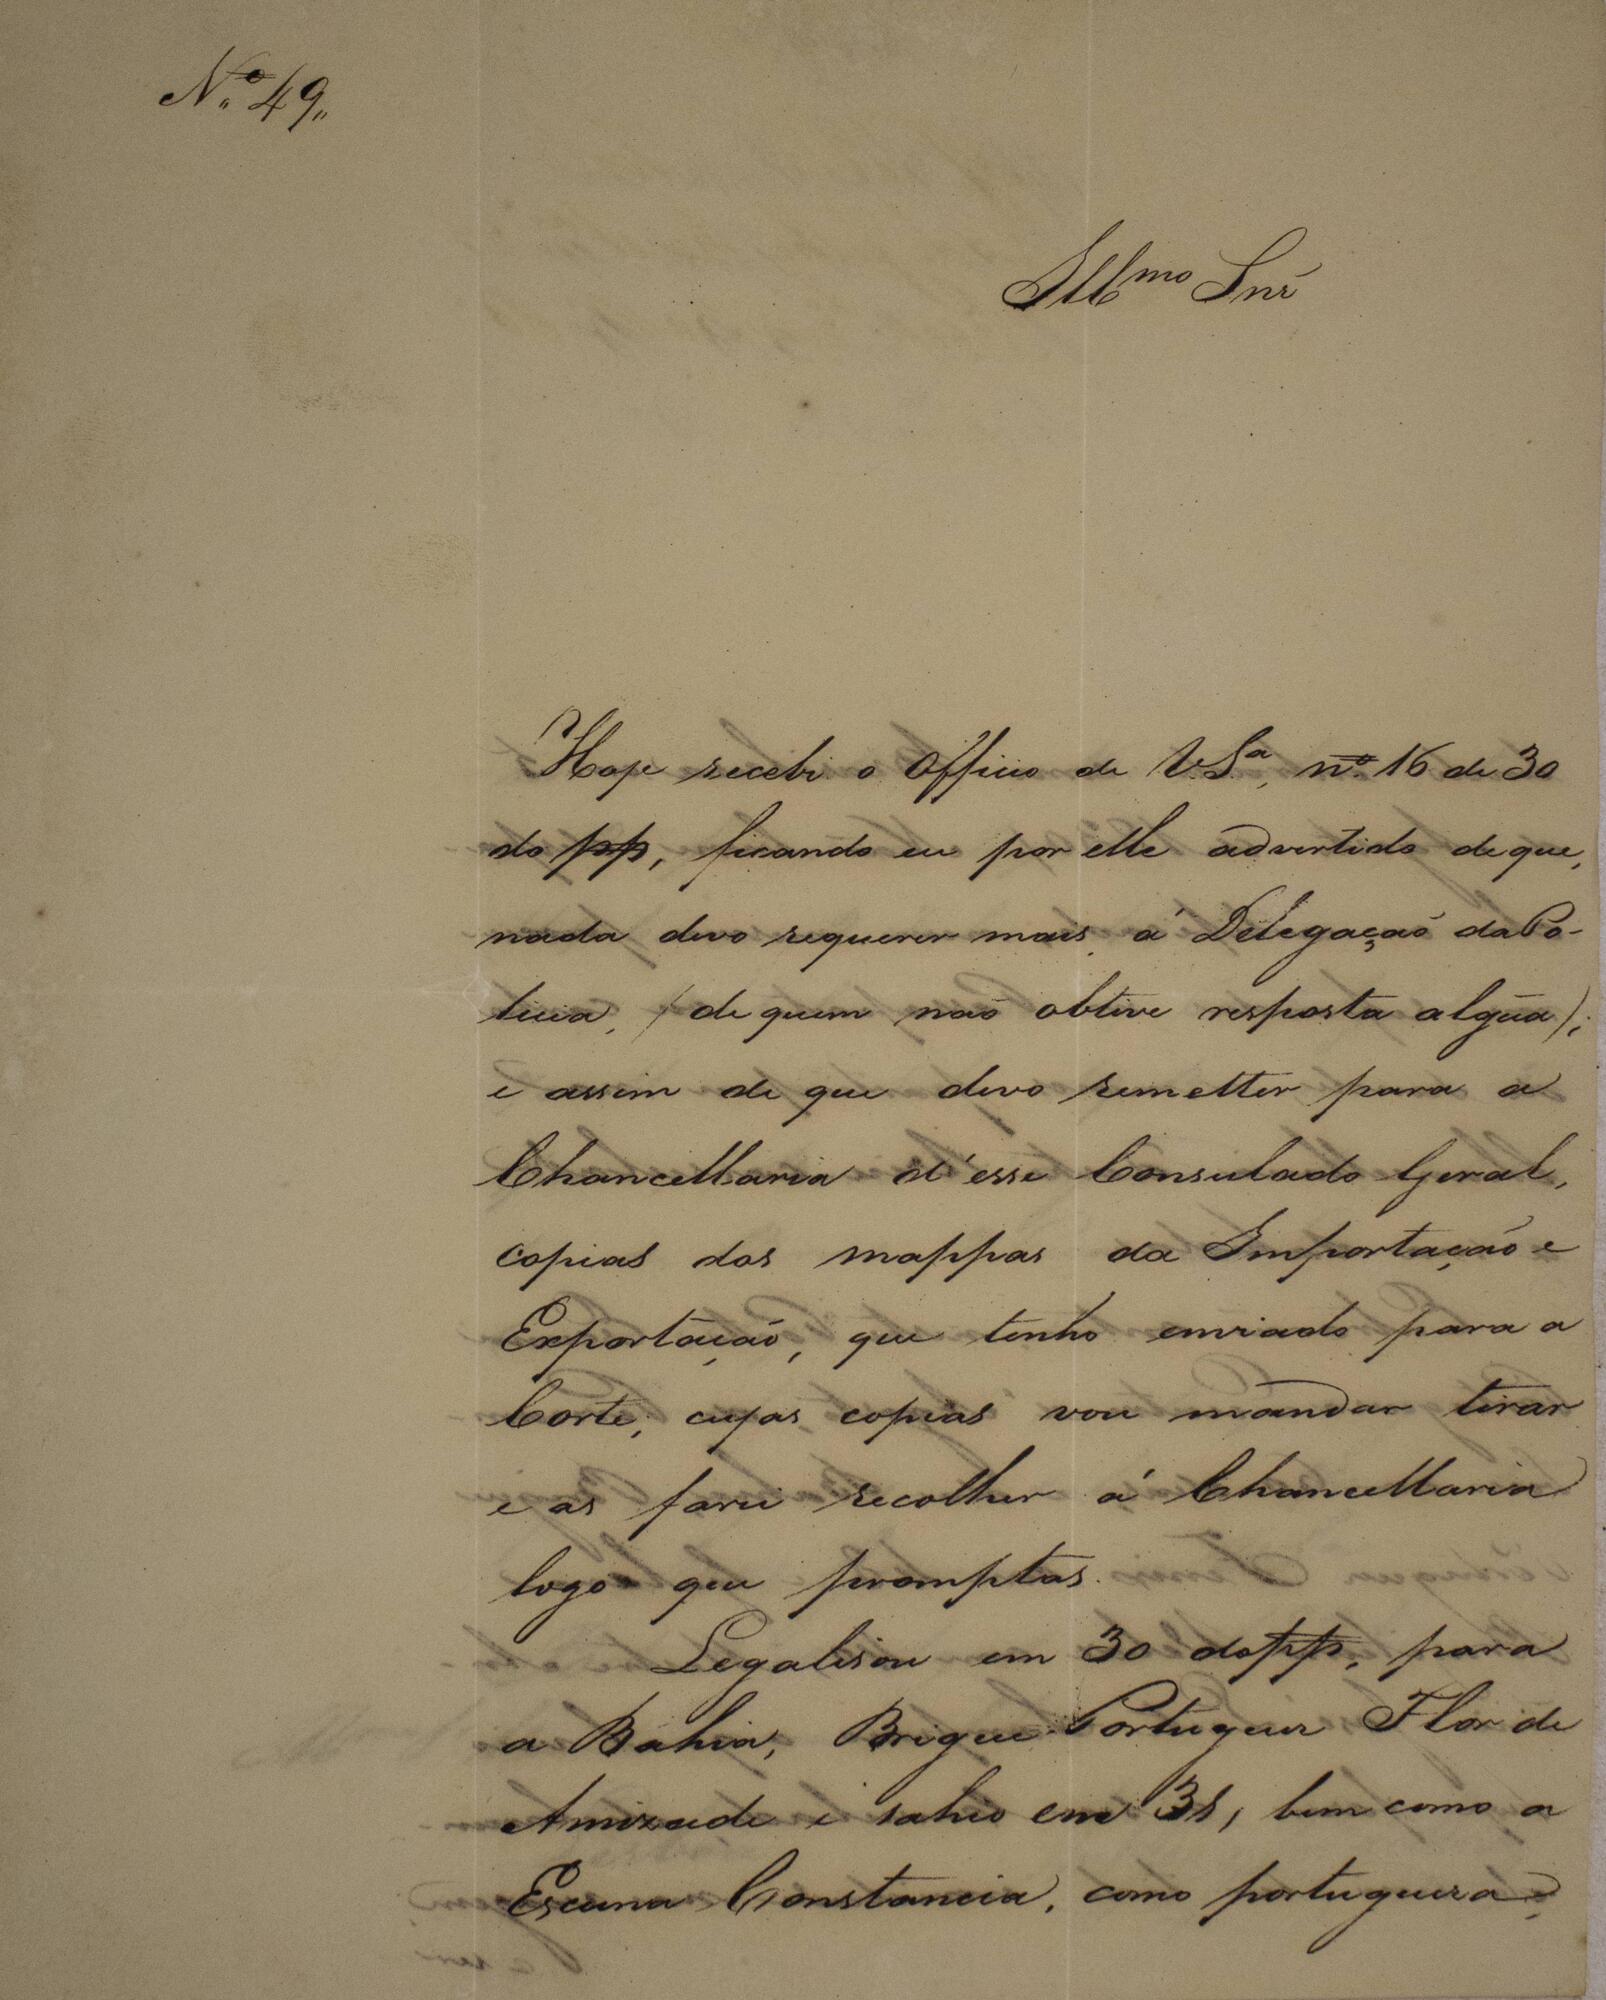 Nº 49
Illmo Snr
Hoje recebi o Officio de V.Sa, nº 16 de 30
do pp, ficando eu por elle advertido de que,
nada devo requerer mais á Delegação da Po-
licia, (de quem não obtive resposta algũa);
e assim de que devo remetter para a
Chancellaria d'esse Consulado Geral,
copias dos mappas da Importação e
Exportação, que tenho enviado para a
Corte, cujas copias vou mandar tirar
e as farei recolher á Chancellaria
logo que promptas.
Legalisou em 30 do pp, para
a Bahia, Brigue Portuguez Flor de
Amizade e sahio em 31, bem como a
Escuna Constancia, como portugueza,